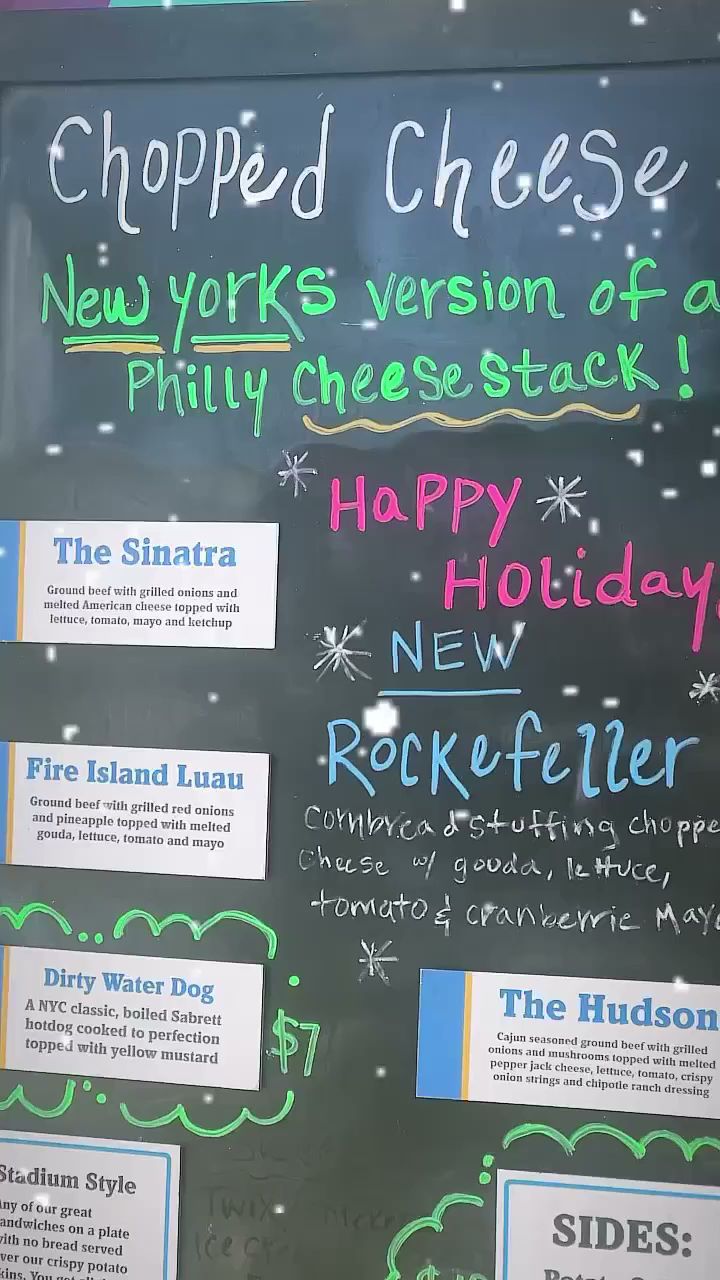 Chopped Cheese
New yorks version of a
Philly Cheesestack!
Happy
Holiday
The Sinatra
Ground beef with grilled onions and
melted American cheese topped with
lettuce, tomato, mayo and ketchup
NEW
Rockefeller
Cornbread stuffing choppe
Cheese w/ gouda, lettuce,
tomato & cranberrie Mayo
Fire Island Luau
Ground beef with grilled red onions
and pineapple topped with melted
gouda, lettuce, tomato and mayo
Dirty Water Dog
A NYC classic, boiled Sabrett
hotdog cooked to perfection
topped with yellow mustard
$7
The Hudson
Cajun seasoned ground beef with grilled
onions and mushrooms topped with melted
pepper jack cheese, lettuce, tomato, crispy
onion strings and chipotle ranch dressing
Stadium Style
ny of our great
andwiches on a plate
ith no bread served
ver our crispy potato
kins. You get all
TWIX
Ice Cr
SIDES: